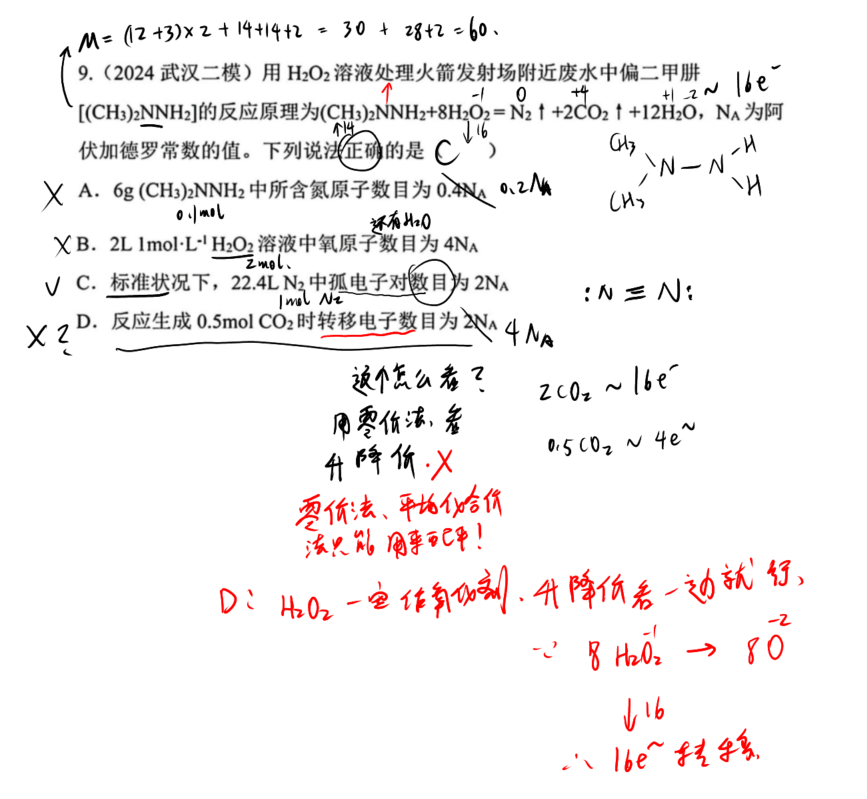 M = (12+3)×2+14+14+2 = 30 + 28+2 = 60.
9.（2024 武汉二模）用 H₂O₂ 溶液处理火箭发射场附近废水中偏二甲肼
-1 0 +4 +1 -2 ~ 16e⁻
[(CH₃)₂NNH₂]的反应原理为(CH₃)₂NNH₂+8H₂O₂= N₂↑+2CO₂↑+12H₂O，NA 为阿
↑14 ↓16
伏加德罗常数的值。下列说法正确的是（ C ）
CH₃ H
N—N
CH₃ H
× A．6g (CH₃)₂NNH₂ 中所含氮原子数目为 0.4NA 0.2NA
0.1mol 还有H₂O
× B．2L 1mol·L⁻¹ H₂O₂ 溶液中氧原子数目为 4NA
2mol.
√ C．标准状况下，22.4L N₂ 中孤电子对数目为 2NA :N≡N:
1mol N₂
×? D．反应生成 0.5mol CO₂ 时转移电子数目为 2NA 4NA
这个怎么看？ 2CO₂ ~ 16e⁻
用零价法、看 0.5CO₂ ~ 4e~
升降价.×
零价法、平均化合价
法只能用来配平!
D: H₂O₂一定作氧化剂.升降价看一边就行、
∵ 8H₂O₂⁻¹ → 8O⁻²
↓16
∴ 16e~ 转移